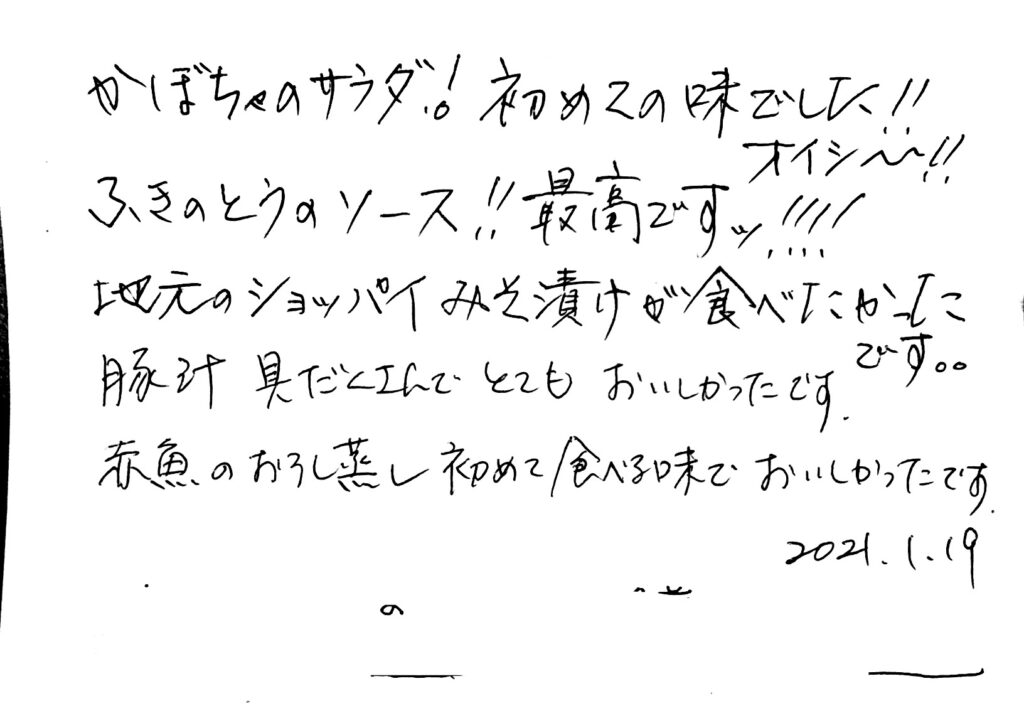 かぼちゃのサラダ!。初めての味でした!!
オイシ〜〜!!
ふきのとうのソース!!最高ですッ!!!!
地元のショッパイみそ漬けが食べたかった
です。。
豚汁 具だくさんで とても おいしかったです.
赤魚のおろし蒸し 初めて食べる味で おいしかったです.
2021.1.19